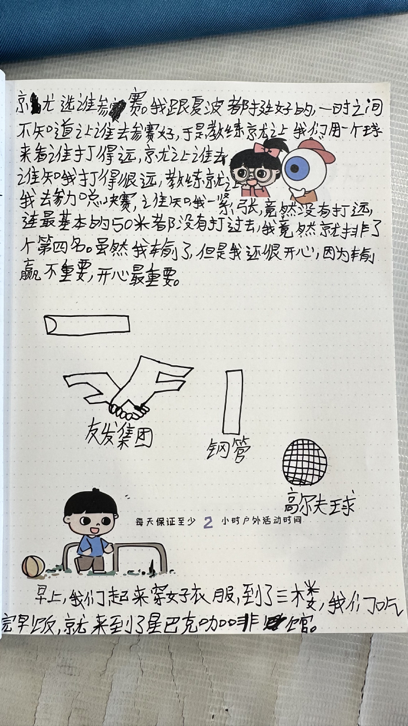 京尤选谁参赛。我跟夏波都打挺好的,一时之间
不知道让谁去参赛好,于是教练京尤让我们用一个球
来看谁打得远,京尤让谁去
谁知我打得很远,教练京尤让
我去参加总决赛,谁知我一紧张,竟然没有打远,
连最基本的50米都没有打过去,我竟然就排了
个第四名。虽然我输了,但是我还很开心,因为输
赢不重要,开心最重要。
友发集团
钢管
高尔夫球
每天保证至少 2 小时户外活动时间
早上,我们起来穿好衣服,到了三楼,我们吃
完早饭,就来到了星巴克咖啡馆。